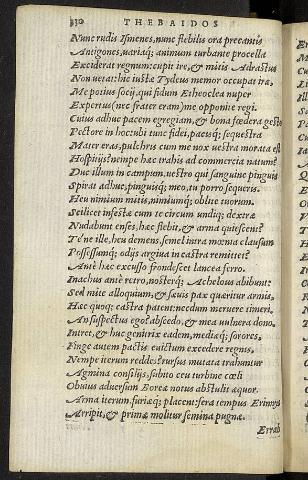 130 THEBAIDOS
Nunc rudis Ismenes, nunc flebilis ora precantis
Antigones, uariaq; animum turbante procella
Exciderat regnum: cupit ire, & mitis Adrastus
Non uetat: hic iustæ Tydeus memor occupat iræ,
Me potius socij, qui fidum Etheoclea nuper
Expertus (nec frater eram) me opponite regi.
Cuius adhuc pacem egregiam, & bona fœdera gesto
Pectore in hoc: ubi tunc fidei, pacisq; sequestra
Mater eras, pulchris cum me nox uestra morata est
Hospitijs? nempe hæc trahis ad commercia natum?
Duc illum in campum, uestro qui sanguine pinguis
Spirat adhuc, pinguisq; meo, tu porro sequeris.
Heu nimium mitis, nimiumq; oblite tuorum.
Scilicet infestæ cum te circum undiq; dextræ
Nudabunt enses, hæc flebit, & arma quiescent?
Te'ne ille, heu demens, semel intra mœnia clausum
Possessumq; odijs argiua in castra remittet?
Antè hæc excusso frondescet lancea ferro.
Inachus antè retro, nosterq; Achelous abibunt:
Sed mite alloquium, & sæuis pax quæritur armis,
Hæc quoq; castra patent: necdum meruere timeri.
An suspectus ego? abscedo, & mea uulnera dono.
Intret, & huc genitrix eadem, mediæq; sorores,
Finge autem pactis euictum excedere regnis,
Nempe iterum reddes? rursus mutata trahuntur
Agmina consilijs, subito ceu turbine cœli
Obuius aduersum Boreæ notus abstulit æquor.
Arma iterum, furiæq; placent: fera tempus Erinnys
Arripit, & primæ molitur semina pugnæ.
Errab